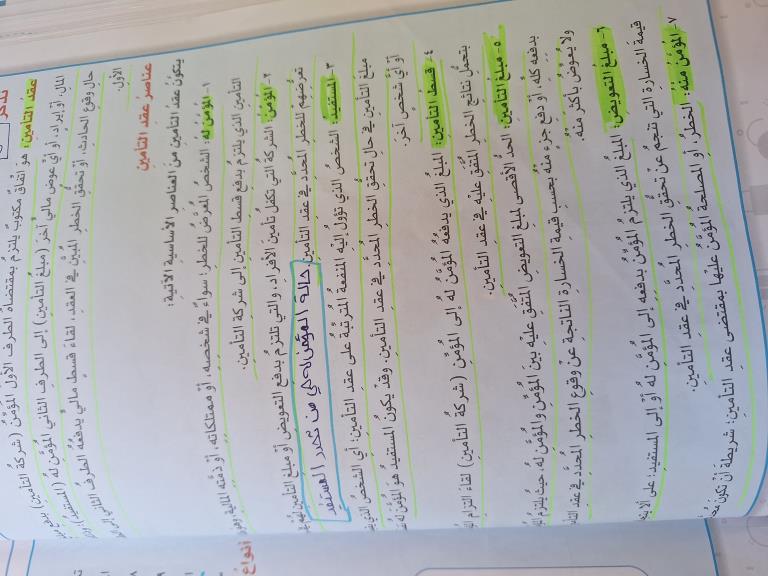 تذكر
عقد التأمين: هو اتفاق مكتوب يلتزم بمقتضاه الطرف الأول المؤمن (شركة التأمين) بدفع
المال، أو إيراد، أو أي عوض مالي آخر (مبلغ التأمين) إلى الطرف الثاني المؤمن له (المستفيد)
حال وقوع الحادث، أو تحقق الخطر المبين في العقد، لقاء قسط مالي يدفعه الطرف الثاني إلى
الأول.
عناصر عقد التأمين
يتكون عقد التأمين من العناصر الأساسية الآتية:
١- المؤمن له: الشخص المعرض للخطر؛ سواء في شخصه، أو ممتلكاته، أو ذمته المالية
التأمين الذي يلتزم بدفع قسط التأمين إلى شركة التأمين.
٢- المؤمن: الشركة التي تكفل تأمين الأفراد، والتي تلتزم بدفع التعويض أو مبلغ التأمين
تعرضهم للخطر المحدد في عقد التأمين. المؤمن له هي من يحدد المستفيد
٣- المستفيد: الشخص الذي تؤول إليه المنفعة المترتبة على عقد التأمين؛ أي الشخص الذي
مبلغ التأمين في حال تحقق الخطر المحدد في عقد التأمين. وقد يكون المستفيد هو المؤمن له
أو أي شخص آخر.
٤- قسط التأمين: المبلغ الذي يدفعه المؤمن له إلى المؤمن (شركة التأمين) لقاء التزام
بتحمل نتائج الخطر المتفق عليه في عقد التأمين.
٥- مبلغ التأمين: الحد الأقصى لمبلغ التعويض المتفق عليه بين المؤمن والمؤمن له، حيث يلتزم
بدفعه كله، أو دفع جزء منه بحسب قيمة الخسارة الناتجة عن وقوع الخطر المحدد في عقد
ولا يعوض بأكثر منه.
٦- مبلغ التعويض: المبلغ الذي يلتزم المؤمن بدفعه إلى المؤمن له أو إلى المستفيد؛ على ألا
قيمة الخسارة التي تنجم عن تحقق الخطر المحدد في عقد التأمين.
٧- المؤمن منه: الخطر، أو المصلحة المؤمن عليها بمقتضى عقد التأمين؛ شريطة أن تكون
أنواع